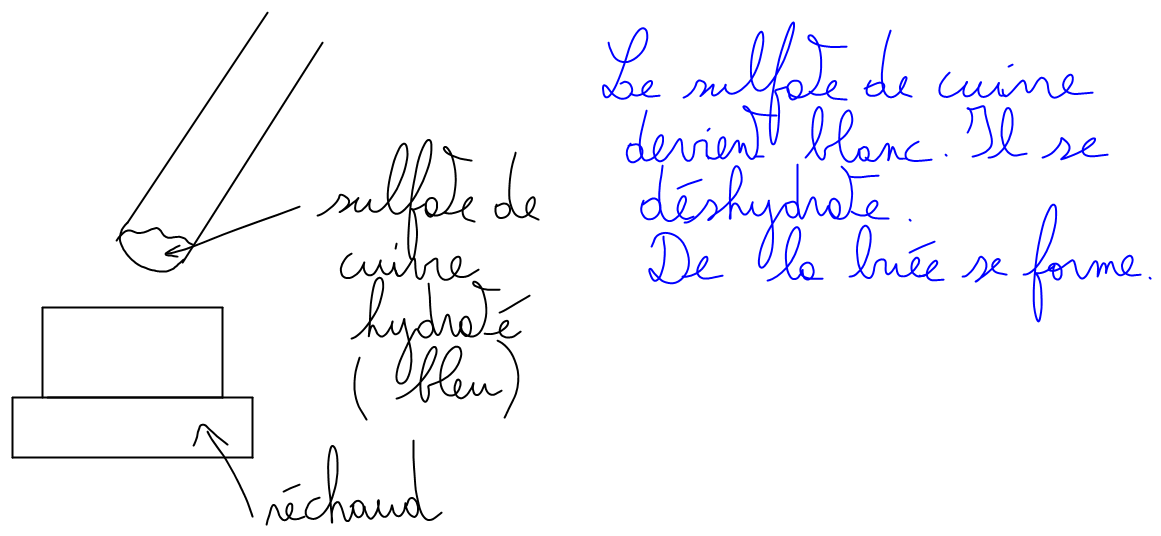 sulfate de
cuivre
hydraté
(bleu)
réchaud
Le sulfate de cuivre
devient blanc. Il se
déshydrate.
De la buée se forme.